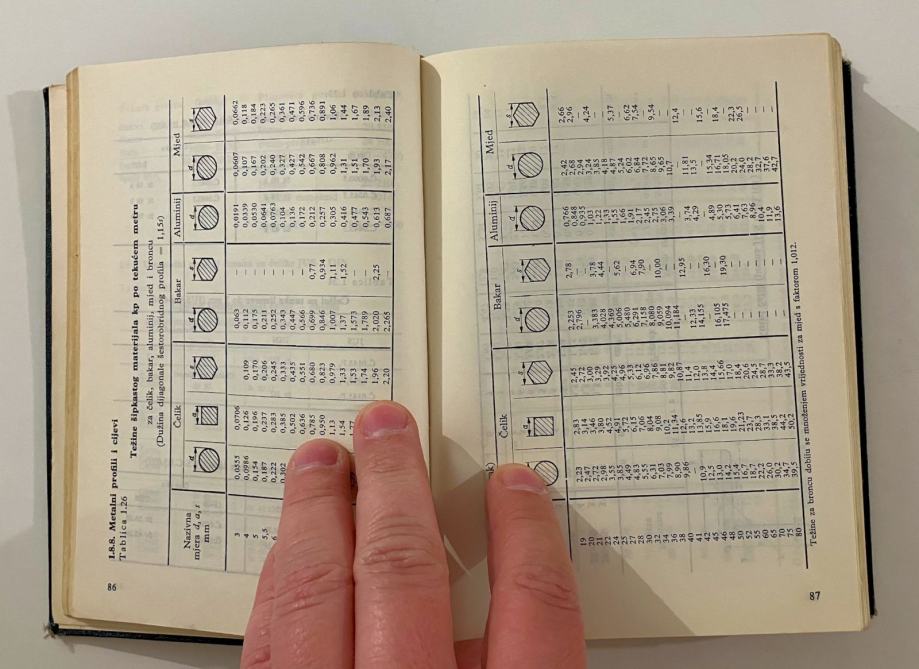 1.8.8. Metalni profili i cijevi
Tablica 1.26
Težine šipkastog materijala kp po tekućem metru
za čelik, bakar, aluminij, mjed i broncu
(Dužina dijagonale šestorobridnog profila = 1,15s)
Nazivna mjera d, a, s mm Čelik Bakar Aluminij Mjed
d a s d s d d s
3 0,0555 0,0706 0,063 – 0,0191 0,0607 0,0662
4 0,0986 0,126 0,109 0,112 – 0,0339 0,107 0,118
5 0,154 0,196 0,170 0,175 – 0,0530 0,167 0,184
5,5 0,187 0,237 0,206 0,211 – 0,0641 0,202 0,223
6 0,222 0,283 0,245 0,252 – 0,0763 0,240 0,265
0,302 0,385 0,333 0,343 – 0,104 0,327 0,361
0,502 0,435 0,447 – 0,136 0,427 0,471
0,636 0,551 0,566 – 0,172 0,542 0,596
0,785 0,680 0,699 0,77 0,212 0,667 0,736
0,950 0,823 0,846 0,934 0,257 0,808 0,891
1,13 0,979 1,007 1,11 0,305 0,962 1,06
1,54 1,33 1,37 1,52 0,416 1,31 1,44
1,77 1,53 1,573 – 0,477 1,51 1,67
1,74 1,789 – 0,543 1,70 1,89
1,96 2,020 2,25 0,613 1,93 2,13
2,20 2,265 – 0,687 2,17 2,40
86
Čelik Bakar Aluminij Mjed
a s d s d d s
19 2,23 2,83 2,45 2,253 2,78 0,766 2,42 2,66
20 2,47 3,14 2,72 2,796 – 0,848 2,68 2,96
21 2,72 3,46 3,00 – – 0,935 2,94 –
22 2,98 3,80 3,29 3,383 3,78 1,03 3,24 4,24
24 3,55 4,52 3,92 4,028 4,44 1,22 3,85 –
25 3,85 4,91 4,25 4,369 – 1,33 4,18 –
27 4,49 5,72 4,96 5,006 5,62 1,55 4,87 5,37
28 4,83 6,15 5,33 5,480 – 1,66 5,24 –
30 5,55 7,06 6,12 6,291 6,94 1,91 6,02 6,62
32 6,31 8,04 6,96 7,158 7,90 2,17 6,84 7,54
34 7,03 9,08 7,86 8,080 – 2,45 7,72 –
36 7,99 10,2 8,81 9,059 10,00 2,75 8,65 9,54
38 8,90 11,34 9,82 10,094 – 3,06 9,65 –
40 9,86 12,6 10,87 11,184 – 3,39 10,7 –
41 – 13,2 11,4 – 12,95 – – 12,4
42 10,9 13,85 12,0 12,33 – 3,74 11,81 –
45 12,5 15,9 13,8 14,155 – 4,29 13,5 –
46 13,0 16,6 14,4 – 16,30 – – 15,6
48 14,2 18,1 15,66 16,105 – 4,89 15,34 –
50 15,4 19,6 17,0 17,475 19,30 5,30 16,71 18,4
52 16,7 21,23 18,4 5,73 18,05 –
55 18,7 23,7 20,6 6,41 20,2 22,3
60 22,2 28,3 24,5 7,63 24,0 26,5
65 26,0 33,1 28,7 8,96 28,2 –
70 30,2 38,5 33,3 10,4 32,7 –
75 34,7 44,2 38,2 11,9 37,6 –
80 39,5 50,2 43,5 13,6 42,7 –
Težine za broncu dobiju se množenjem vrijednosti za mjed s faktorom 1,012.
87